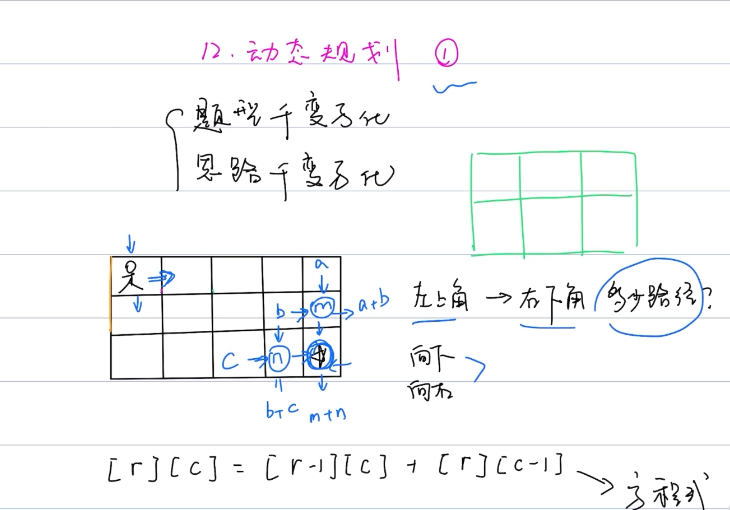 12. 动态规划 ①
题型千变万化
思路千变万化
a
b m a+b
c n
b+c m+n
左上角 → 右下角 多少路径?
向下
向右
[r][c] = [r-1][c] + [r][c-1]
方程式